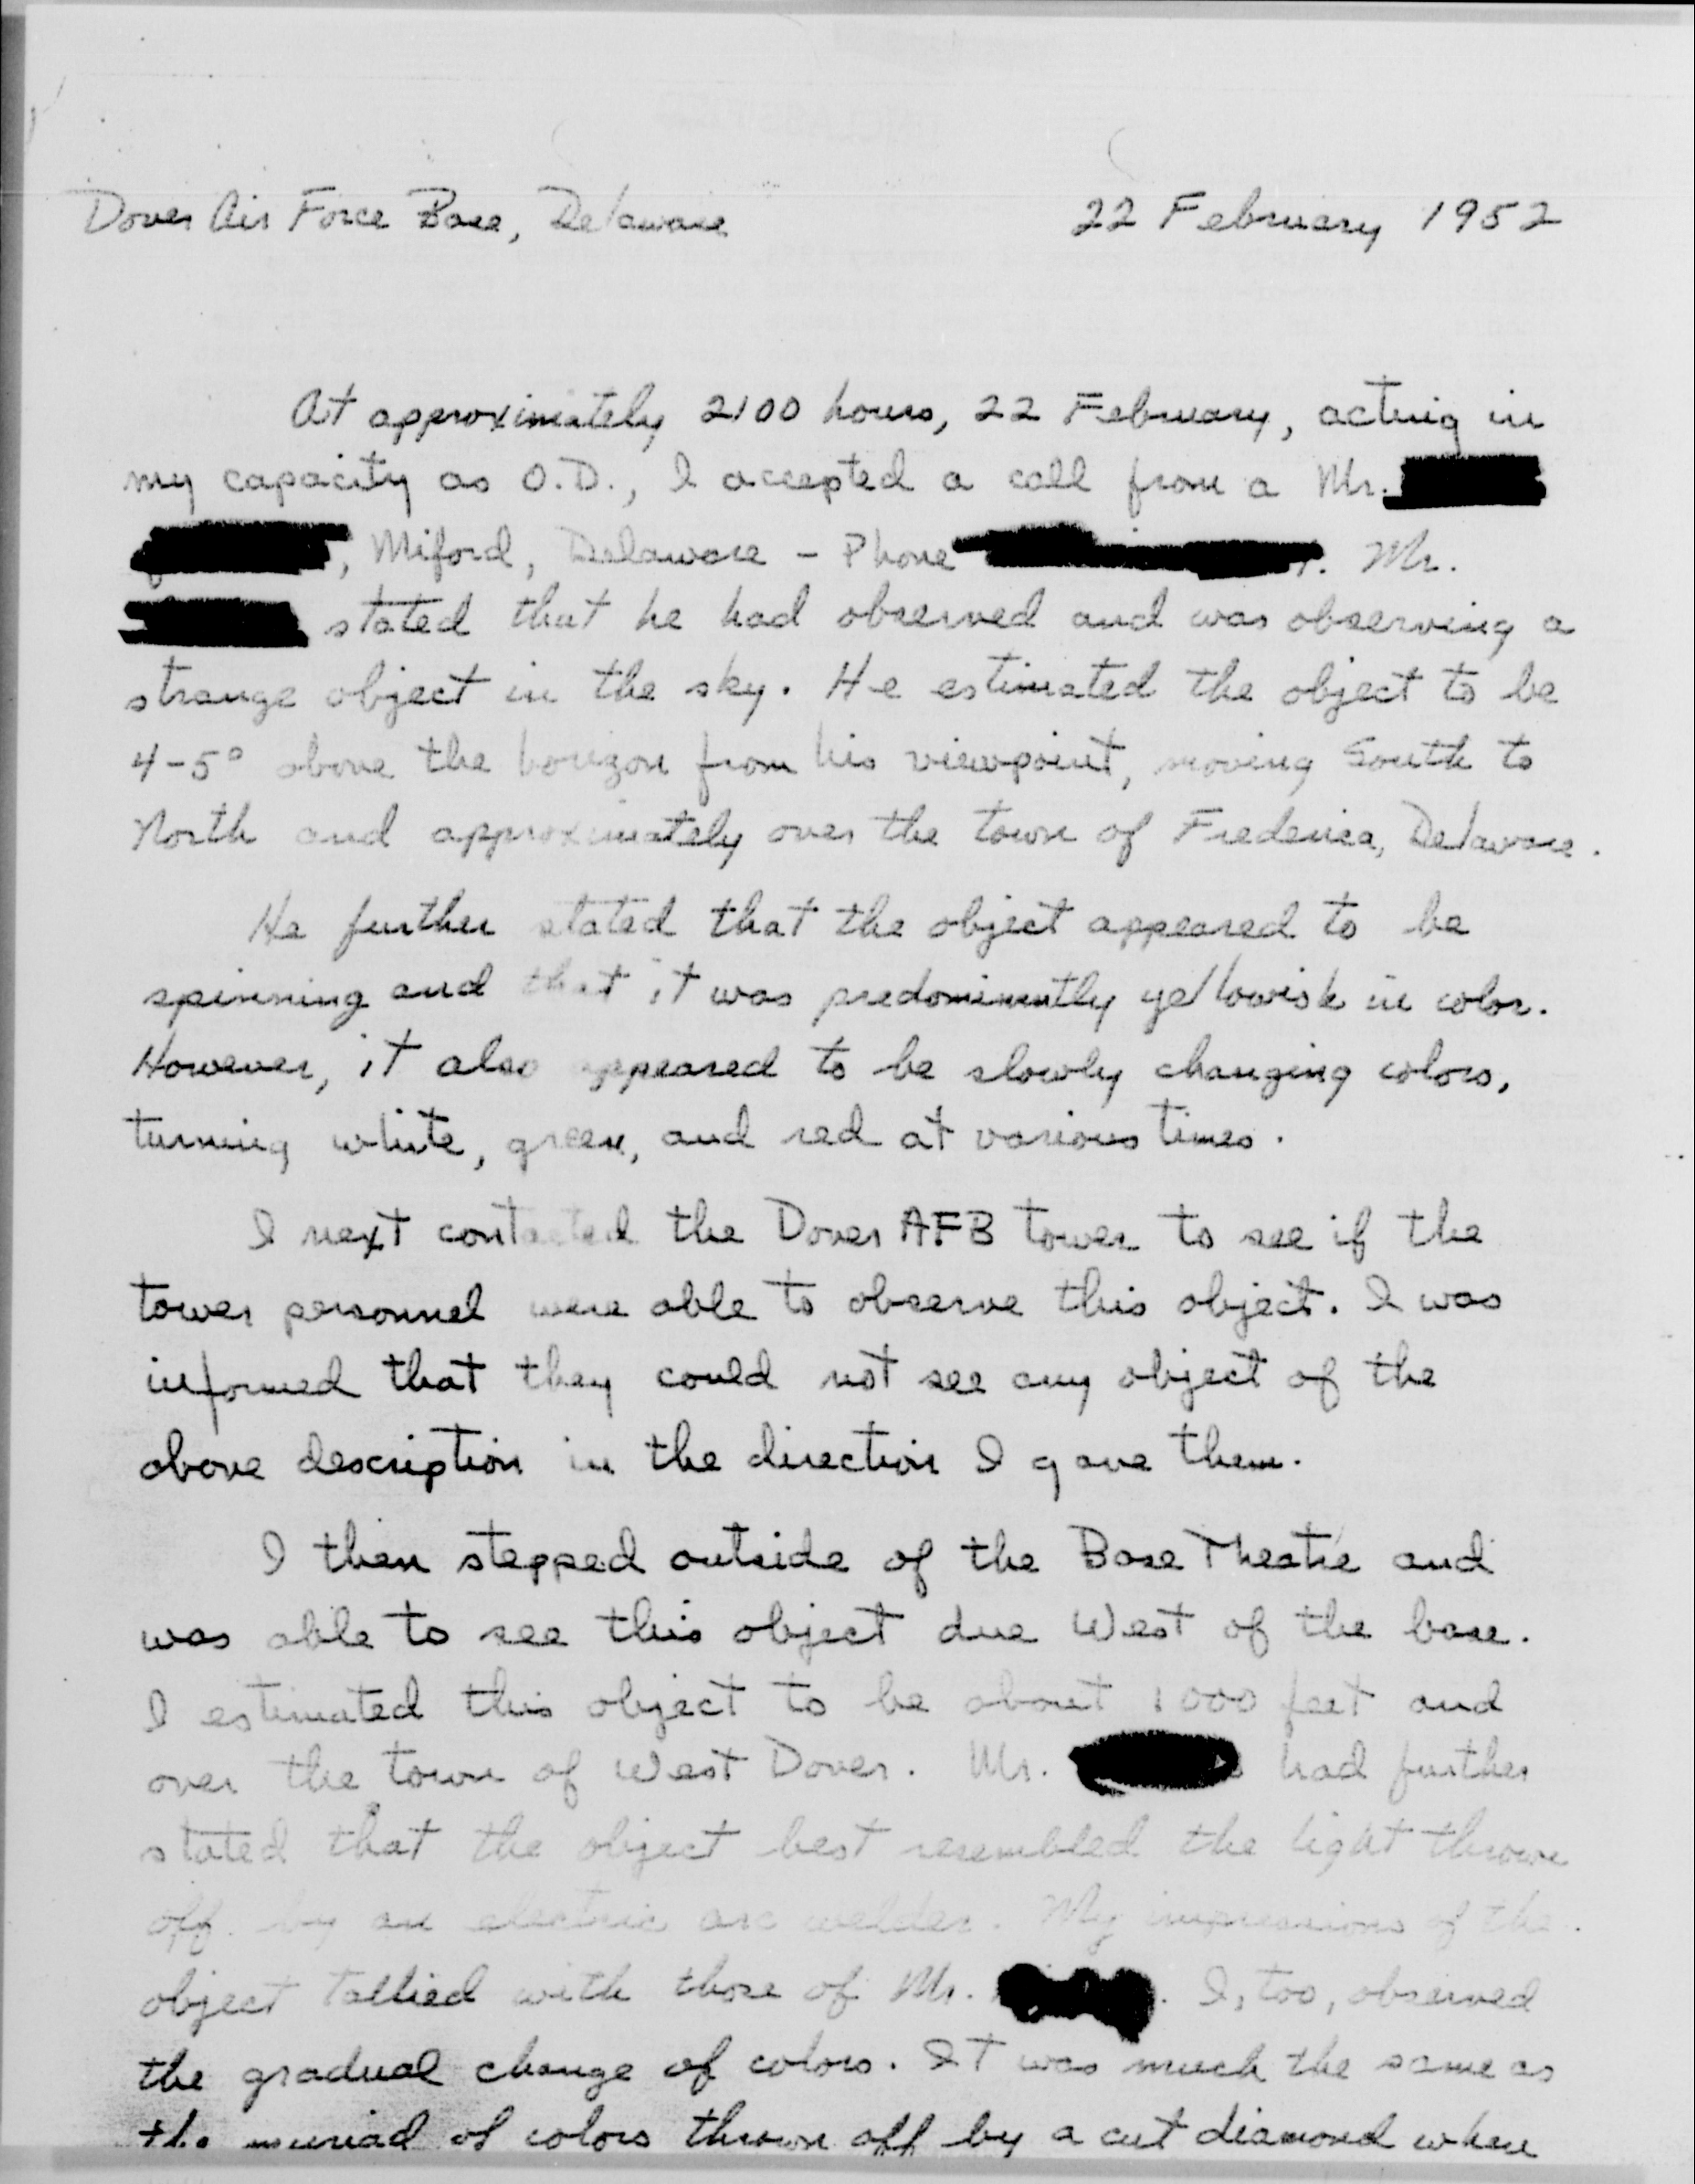 Dover Air Force Base, Delaware 22 February 1952
At approximately 2100 hours, 22 February, acting in
my capacity as O.D., I accepted a call from a Mr.
, Miford, Delaware - Phone . Mr.
stated that he had observed and was observing a
strange object in the sky. He estimated the object to be
4-5° above the horizon from his viewpoint, moving South to
North and approximately over the town of Frederica, Delaware.
He further stated that the object appeared to be
spinning and that it was predominently yellowish in color.
However, it also appeared to be slowly changing colors,
turning white, green, and red at various times.
I next contacted the Dover AFB tower to see if the
tower personnel were able to observe this object. I was
informed that they could not see any object of the
above description in the direction I gave them.
I then stepped outside of the Base Theatre and
was able to see this object due West of the base.
I estimated this object to be about 1000 feet and
over the town of West Dover. Mr. had further
stated that the object best resembled the light thrown
off by an electric arc welder. My impressions of the
object tallied with those of Mr. . I, too, observed
the gradual change of colors. It was much the same as
the muriad of colors thrown off by a cut diamond when